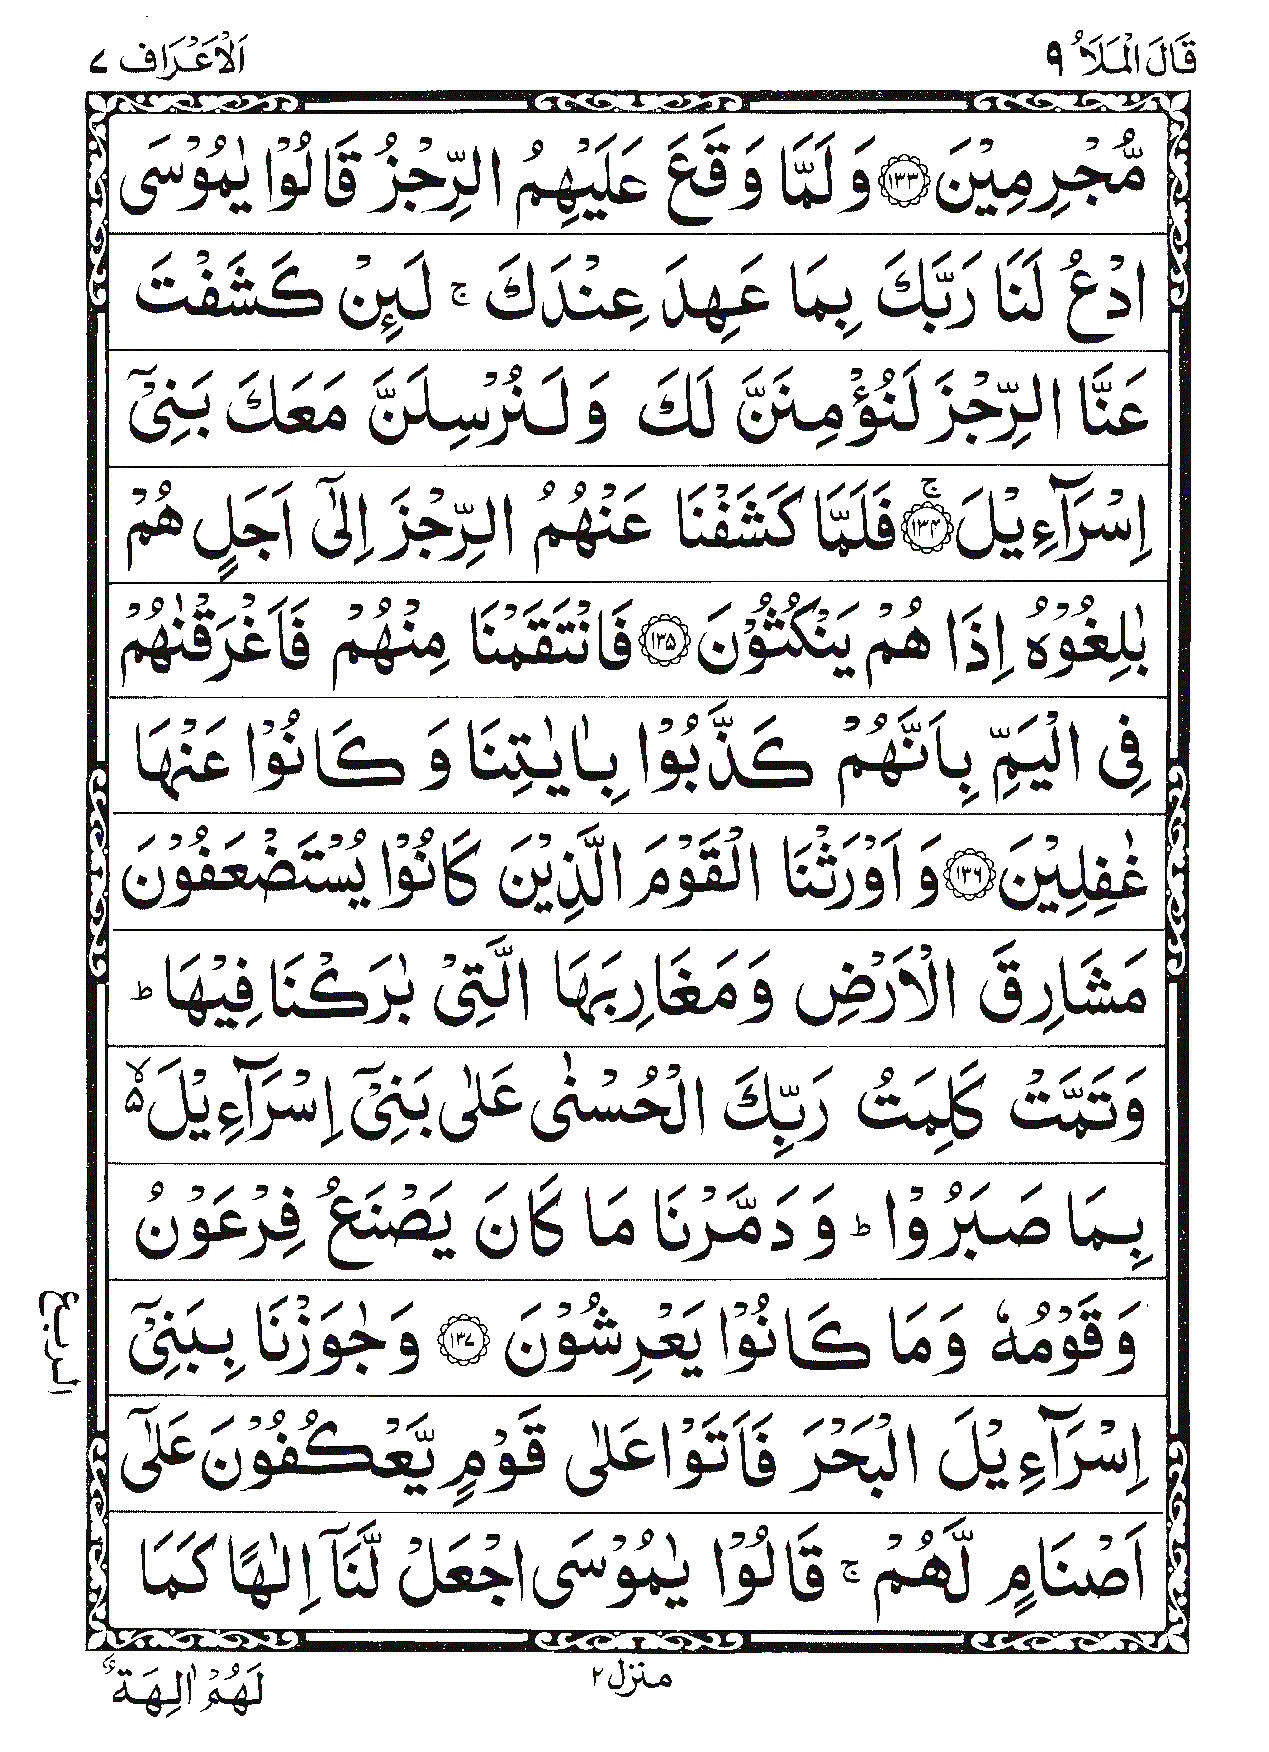 قَالَ الْمَلَاُ ٩ اَلْاَعْرَاف ٧
مُّجْرِمِيْنَ ۝١٣٣ وَ لَمَّا وَقَعَ عَلَيْهِمُ الرِّجْزُ قَالُوْا يٰمُوْسَى
ادْعُ لَنَا رَبَّكَ بِمَا عَهِدَ عِنْدَكَ ۚ لَىِٕنْ كَشَفْتَ
عَنَّا الرِّجْزَ لَنُؤْمِنَنَّ لَكَ وَ لَنُرْسِلَنَّ مَعَكَ بَنِيْۤ
اِسْرَآءِيْلَ ۝١٣٤ۚ فَلَمَّا كَشَفْنَا عَنْهُمُ الرِّجْزَ اِلٰۤى اَجَلٍ هُمْ
بٰلِغُوْهُ اِذَا هُمْ يَنْكُثُوْنَ ۝١٣٥ فَانْتَقَمْنَا مِنْهُمْ فَاَغْرَقْنٰهُمْ
فِى الْيَمِّ بِاَنَّهُمْ كَذَّبُوْا بِاٰيٰتِنَا وَ كَانُوْا عَنْهَا
غٰفِلِيْنَ ۝١٣٦ وَ اَوْرَثْنَا الْقَوْمَ الَّذِيْنَ كَانُوْا يُسْتَضْعَفُوْنَ
مَشَارِقَ الْاَرْضِ وَمَغَارِبَهَا الَّتِيْ بٰرَكْنَا فِيْهَا ؕ
وَتَمَّتْ كَلِمَتُ رَبِّكَ الْحُسْنٰى عَلٰى بَنِيْۤ اِسْرَآءِيْلَ ۙ۵
بِمَا صَبَرُوْا ؕ وَ دَمَّرْنَا مَا كَانَ يَصْنَعُ فِرْعَوْنُ
وَقَوْمُهٗ وَمَا كَانُوْا يَعْرِشُوْنَ ۝١٣٧ وَجٰوَزْنَا بِبَنِيْۤ
الربع
اِسْرَآءِيْلَ الْبَحْرَ فَاَتَوْا عَلٰى قَوْمٍ يَّعْكُفُوْنَ عَلٰۤى
اَصْنَامٍ لَّهُمْ ۚ قَالُوْا يٰمُوْسَى اجْعَلْ لَّنَاۤ اِلٰهًا كَمَا
منزل ٢ لَهُمْ اٰلِهَةٌ ؕ